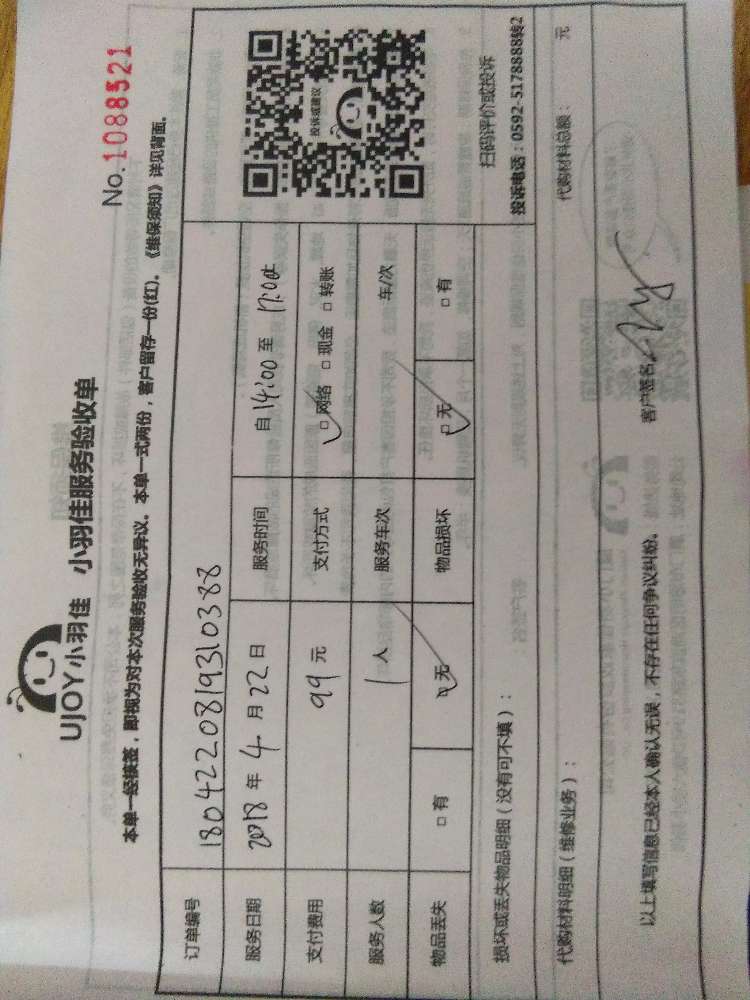 No.1088521
UJOY小羽佳 小羽佳服务验收单
本单一经接签，即视为对本次服务验收无异议。本单一式两份，客户留存一份(红)。《维保须知》详见背面。
订单编号 1804220819310388
服务日期 2018 年 4 月 22 日 服务时间 自 14:00 至 17:00
支付费用 99 元 支付方式 □网络 □现金 □转账
服务人数 1 人 服务车次 车/次
物品丢失 □有 □无 物品损坏 □无 □有
投诉或建议
扫码评价或投诉
投诉电话：0592-5178888转2
损坏或丢失物品明细（没有可不填）：
代购材料明细（维修业务）： 代购材料总额： 元
以上填写信息已经本人确认无误，不存在任何争议纠纷。 客户签名